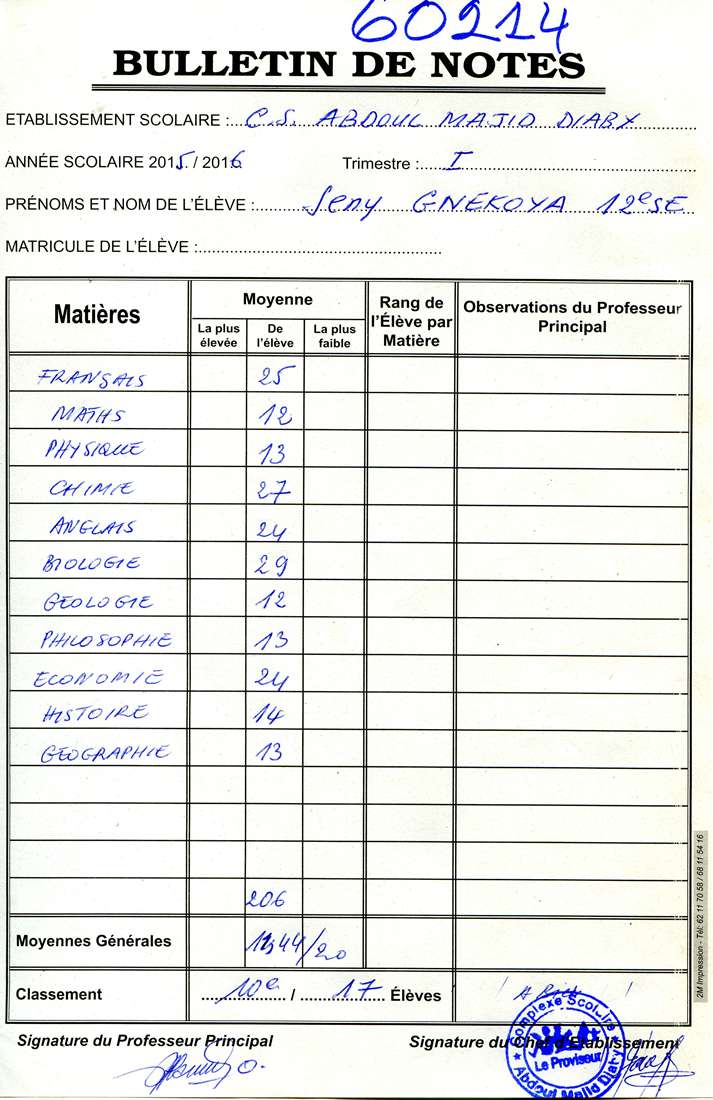 60214
BULLETIN DE NOTES
ETABLISSEMENT SCOLAIRE : C.S. ABDOUL MAJID DIABY
ANNÉE SCOLAIRE 2015 / 2016 Trimestre : I
PRÉNOMS ET NOM DE L'ÉLÈVE : Seny GNEKOYA 12e SE
MATRICULE DE L'ÉLÈVE :
Matières Moyenne Rang de l'Élève par Matière Observations du Professeur Principal
La plus élevée De l'élève La plus faible
FRANÇAIS 25
MATHS 12
PHYSIQUE 13
CHIMIE 27
ANGLAIS 24
BIOLOGIE 29
GEOLOGIE 12
PHILOSOPHIE 13
ECONOMIE 24
HISTOIRE 14
GEOGRAPHIE 13
206
Moyennes Générales 44/20
Classement 10e / 17 Élèves
Signature du Professeur Principal Signature du Chef d'Etablissement
Complexe Scolaire
Le Proviseur
Abdoul Majid Diaby
2M Impression - Tél: 62 11 70 58 / 68 11 54 16